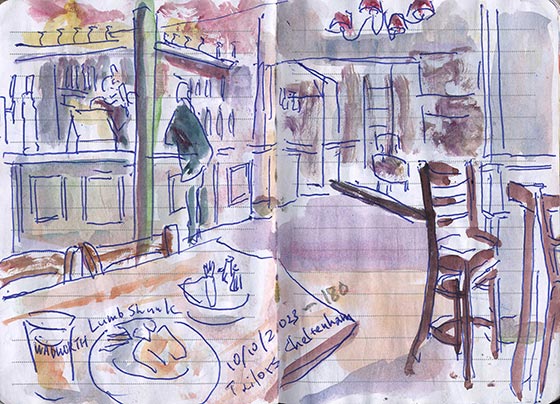 Lamb Shank
WADWORTH
10/10/2023 - 180
Tailors Cheltenham